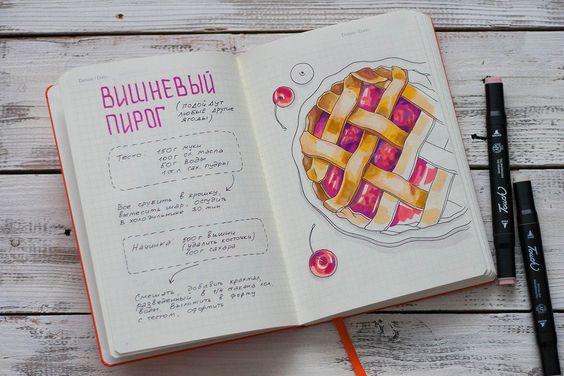 Datum / Date:
ВИШНЕВЫЙ
ПИРОГ
(подойдут
любые другие
ягоды)
Тесто 150г муки
100г сл. масла
50г воды
1 ст.л сах. пудры
Все срубить в крошку,
вымесить шар. Остудить
в холодильнике 30 мин
Начинка 500г вишни
(удалить косточки)
100г сахара
Смешать, добавить крахмал,
разведенный в 1/4 стакана хол.
воды. Выложить в форму
с тестом, оформить
Datum / Date:
Touch
Touch